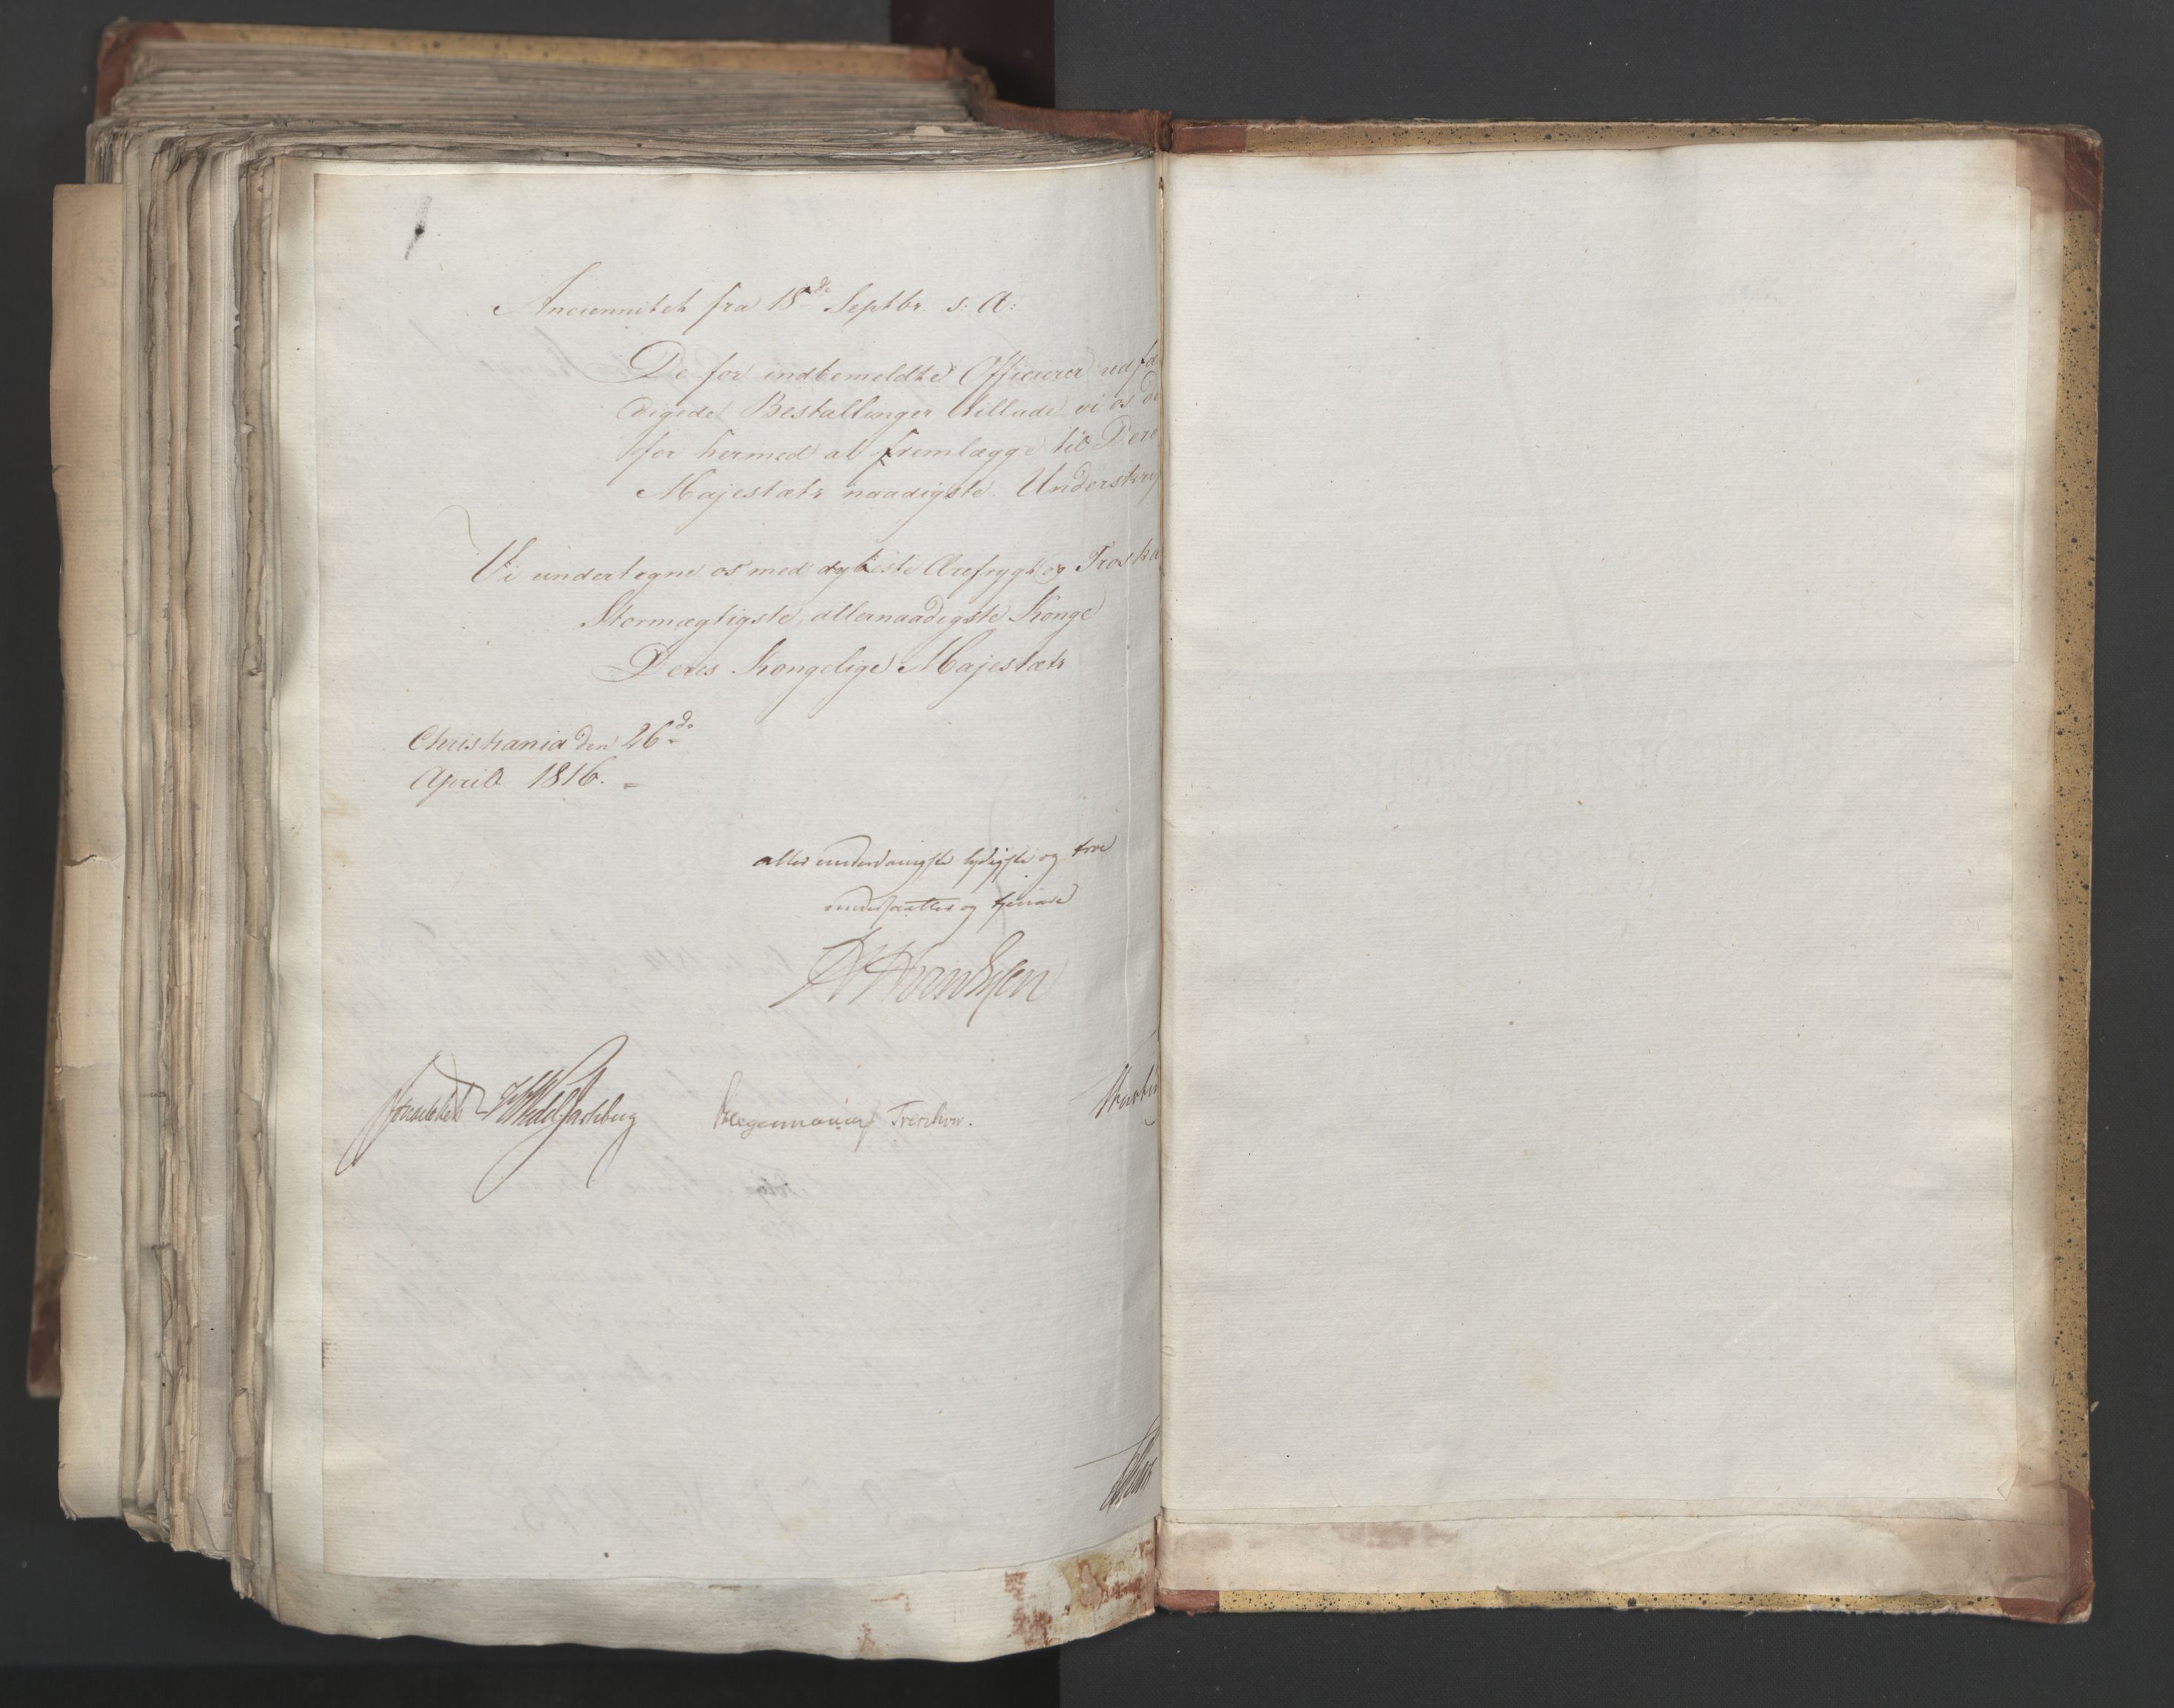 Anciennitet fra 18de Septbr. s: A:
De for indbemeldte Officierer udfæ
digede Bestallinger tillade vi os de
for hermed at fremlægge til Dere
Majestæts naadigste Underskri
Vi undertegne os med dybeste Ærefrygt og Troska
Stormægtigste, allernaadigste Konge
Deres Kongelige Majestæts
Christiania den 26de
April 1816.
allerunderdanigste lydigste og troe
undersaatter og tjenere
Sommerhielm
Wedel Jarlsberg
Hegermann
Treschow.